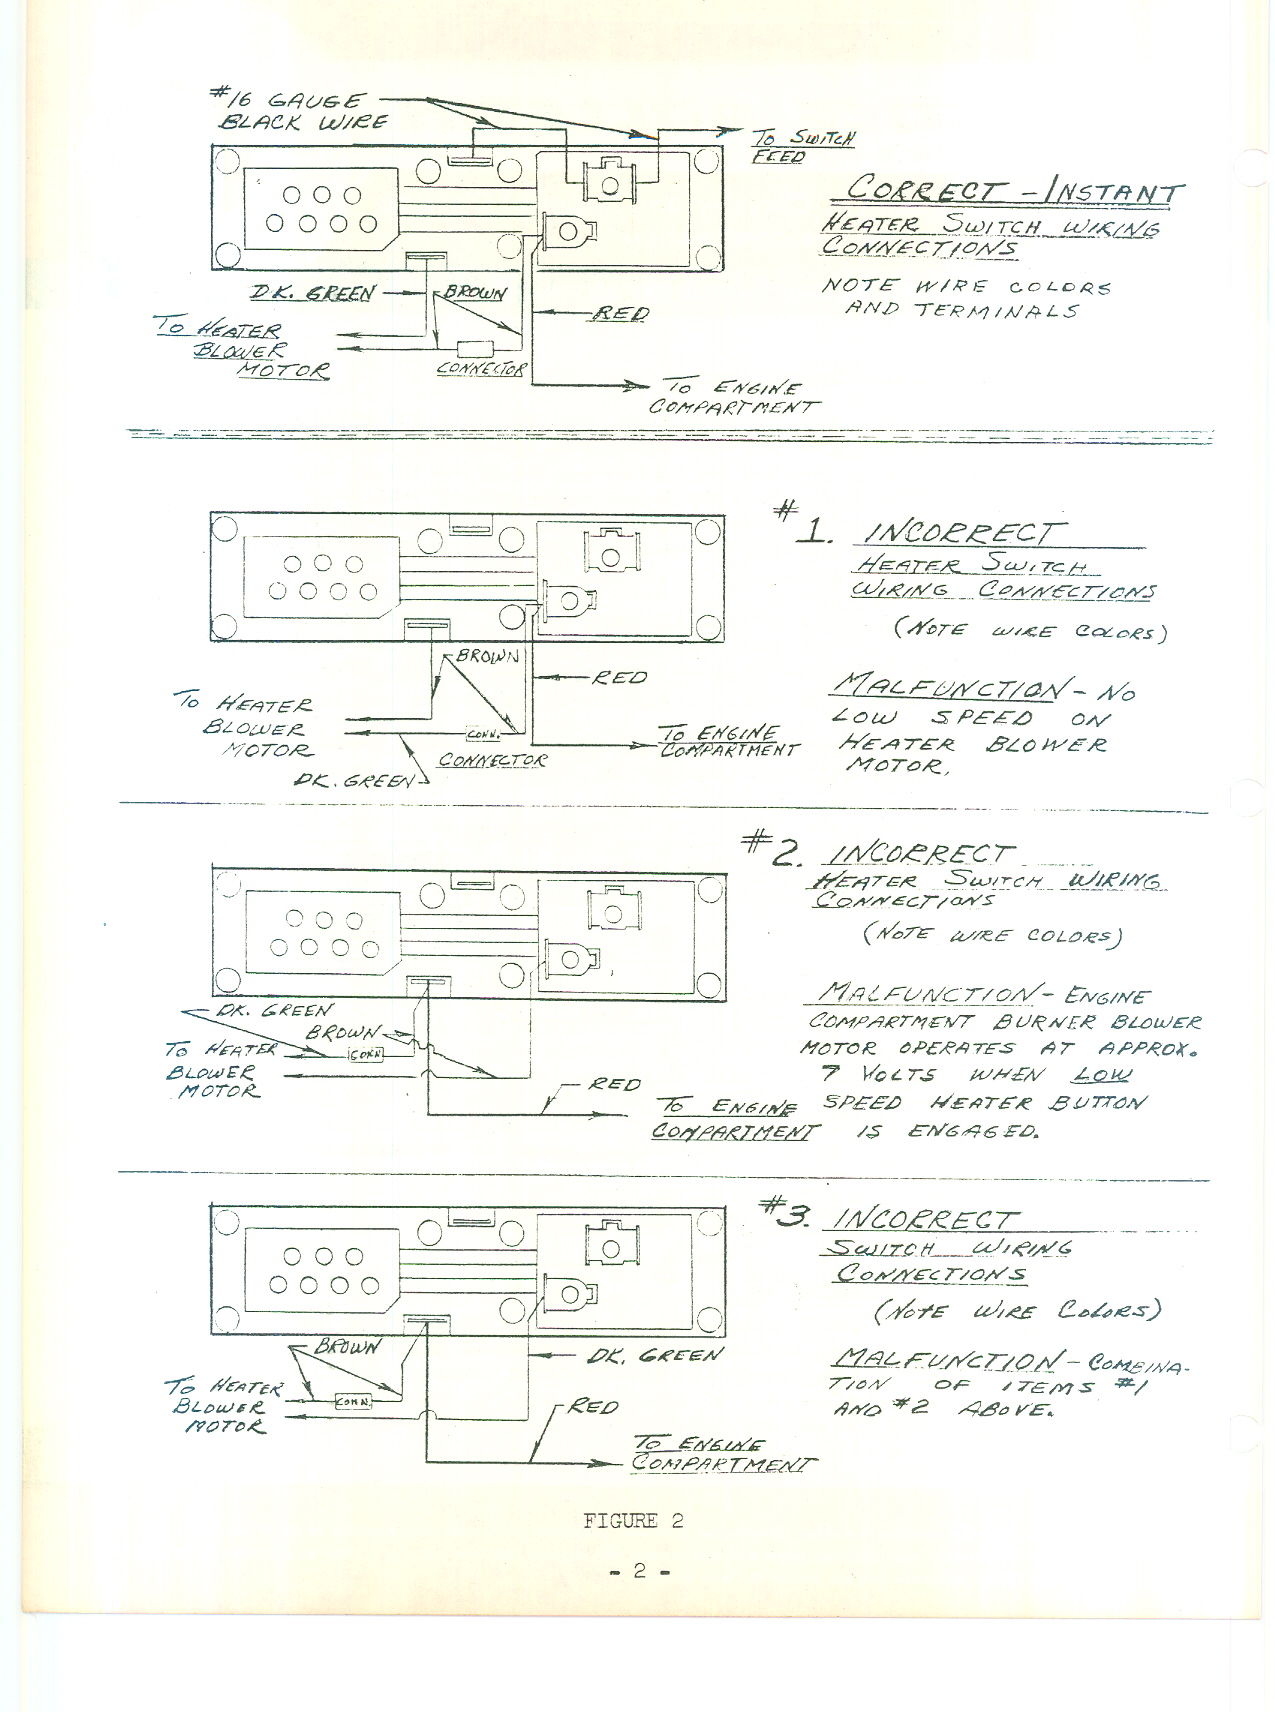 #16 GAUGE
BLACK WIRE
TO SWITCH
FEED
CORRECT - INSTANT
HEATER SWITCH WIRING
CONNECTIONS
NOTE WIRE COLORS
AND TERMINALS
DK. GREEN
BROWN
RED
TO HEATER
BLOWER
MOTOR
CONNECTOR
TO ENGINE
COMPARTMENT
#1. INCORRECT
HEATER SWITCH
WIRING CONNECTIONS
(NOTE WIRE COLORS)
BROWN
RED
MALFUNCTION - NO
LOW SPEED ON
HEATER BLOWER
MOTOR.
TO HEATER
BLOWER
MOTOR
CONN.
CONNECTOR
TO ENGINE
COMPARTMENT
DK. GREEN
#2. INCORRECT
HEATER SWITCH WIRING
CONNECTIONS
(NOTE WIRE COLORS)
MALFUNCTION - ENGINE
COMPARTMENT BURNER BLOWER
MOTOR OPERATES AT APPROX.
7 VOLTS WHEN LOW
SPEED HEATER BUTTON
IS ENGAGED.
DK. GREEN
BROWN
TO HEATER
BLOWER
MOTOR
CONN
RED
TO ENGINE
COMPARTMENT
#3. INCORRECT
SWITCH WIRING
CONNECTIONS
(NOTE WIRE COLORS)
MALFUNCTION - COMBINA-
TION OF ITEMS #1
AND #2 ABOVE.
BROWN
DK. GREEN
TO HEATER
BLOWER
MOTOR
CONN.
RED
TO ENGINE
COMPARTMENT
FIGURE 2
- 2 -